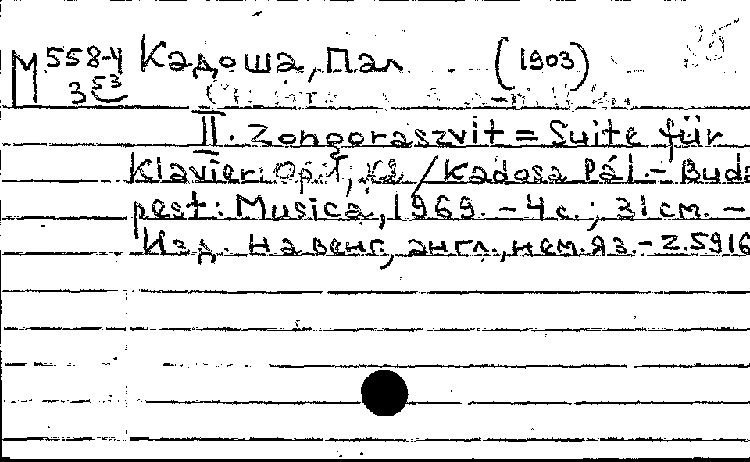 М 558-4 Кадоша, Пал (1903)
353
II. Zongoraszvit = Suite für
Klavier: Op. 1, / Kadosa Pál. - Buda
pest: Musica, 1969. - 4 с.; 31 см. -
Изд. на венг., англ., нем. яз. - Z.5916